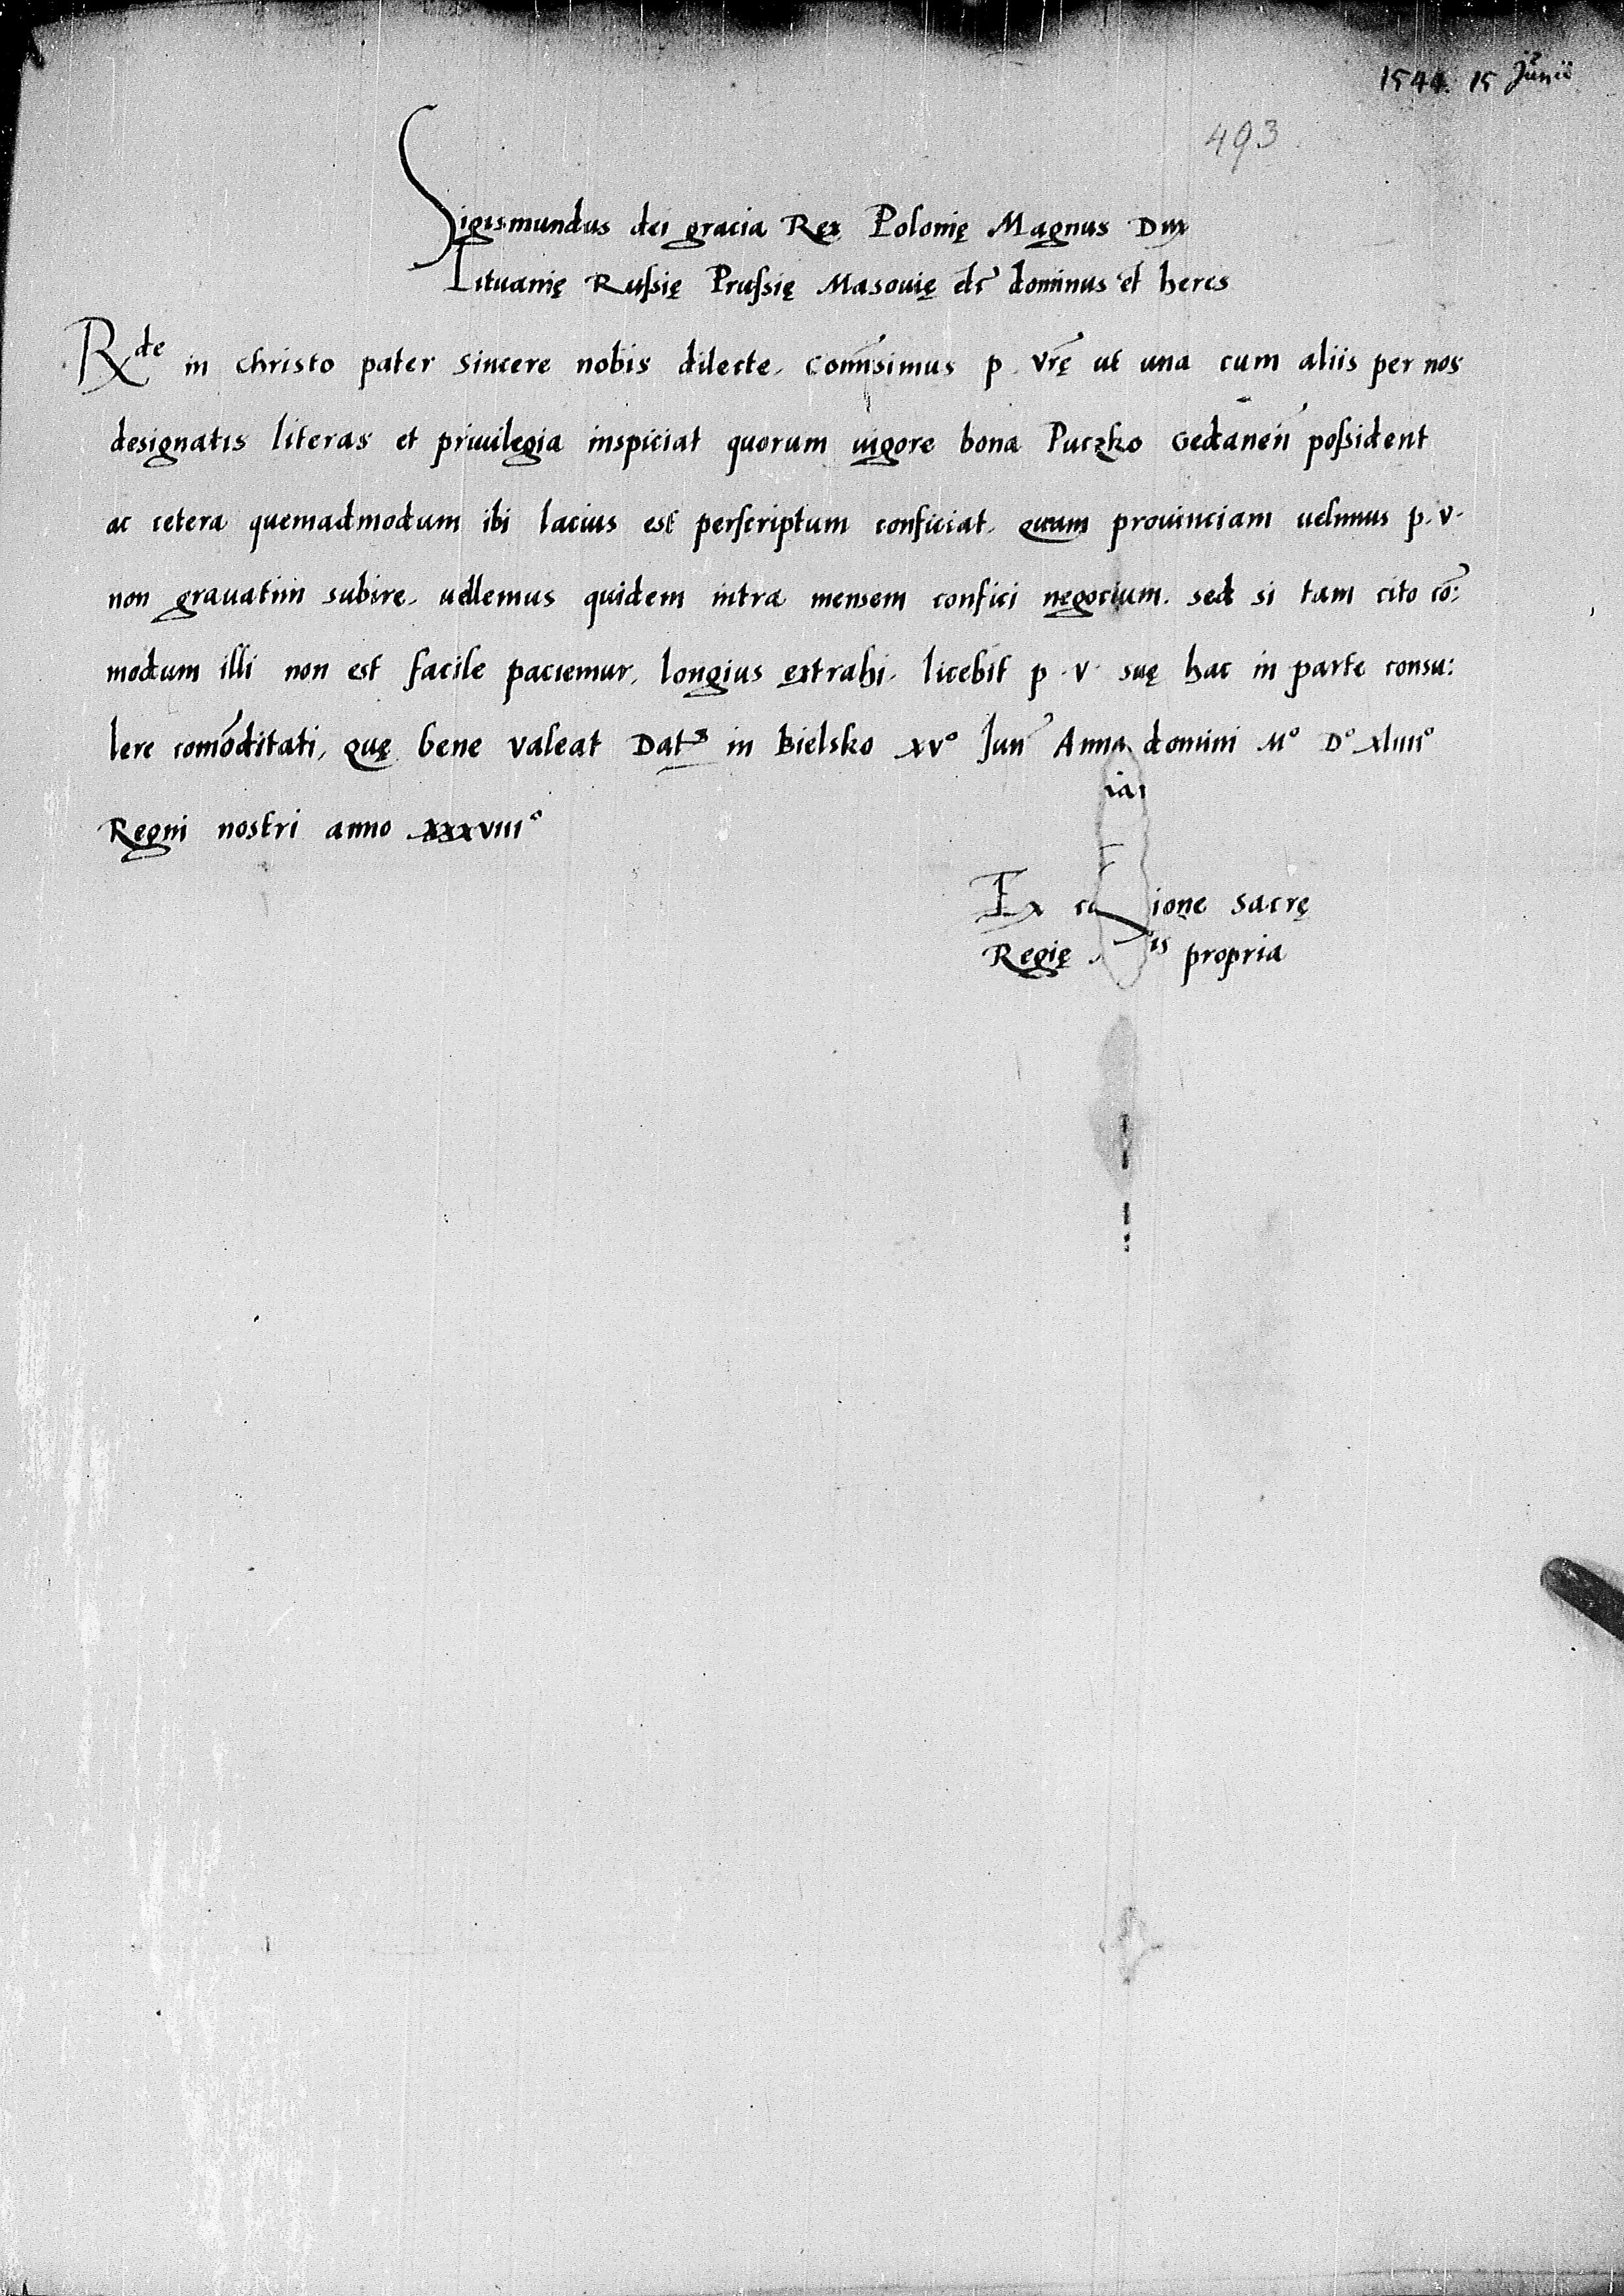 1544. 15 Junii
493
Sigismundus dei gracia Rex Polonię Magnus Dux
Lituanię Russię Prussię Masovię etc̃ dominus et heres
Rde in Christo pater sincere nobis dilecte. Com̃isimus p. vr̃ę ut una cum aliis per nos
designatis literas et privilegia inspiciat quorum vigore bona Puczko Gedaneñ possident
ac cetera quemadmodum ibi lacius est perscriptum conficiat. Quam provinciam velimus p. v.
non gravatim subire. vellemus quidem intra mensem confici negocium. sed si tam cito cõ:
modum illi non est facile paciemur, longius extrahi. licebit p. v. suę hac in parte consu:
lere com̃oditati, quę bene valeat Dat in Bielsko xvº Juñ Anno domini Mº Dº xliiiiº
Regni nostri anno xxxviiiº
Ex co ione sacrę
Regię tis propria